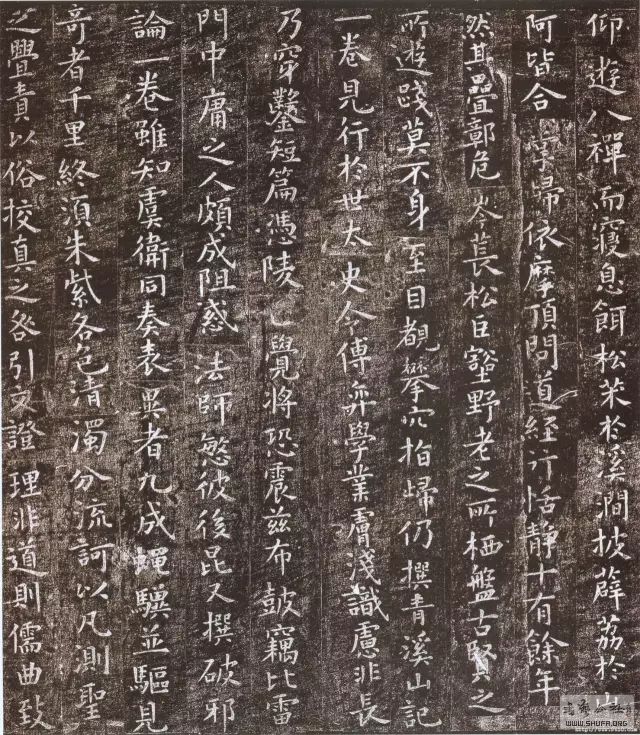 仰遊八禪而寢息餌松朮於溪澗披薜荔於山
阿皆合歸依摩頂問道經行恬靜十有餘年
然其疊鄣危岑萇松巨壑野老之所栖盤古賢之
所遊踐莫不身至目覩攀穴指歸仍撰青溪山記
一卷見行於世太史令傅弈學業膚淺識慮非長
乃穿鑿短篇憑陵覺將恐震茲布鼓竊比雷
門中庸之人頗成阻惑法師愍彼後昆又撰破邪
論一卷雖知虞衛同奏表異者九成蠅驥並驅見
奇者千里終須朱紫各色清濁分流訶以凡測聖
之舋責以俗校真之咎引文證理非道則儒曲致
WWW.SHUFA.ORG